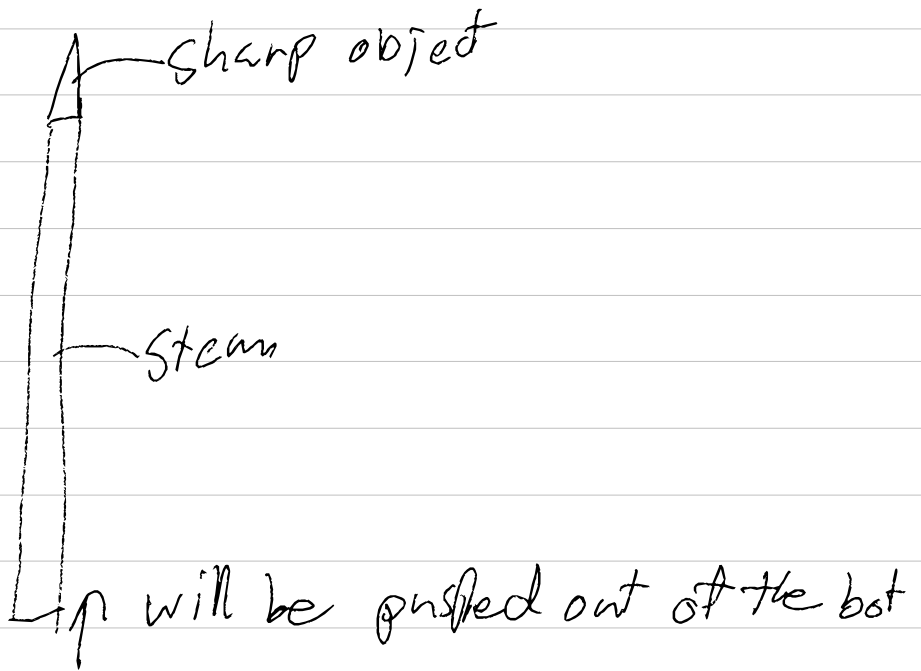 sharp object
steam
will be pushed out of the bot